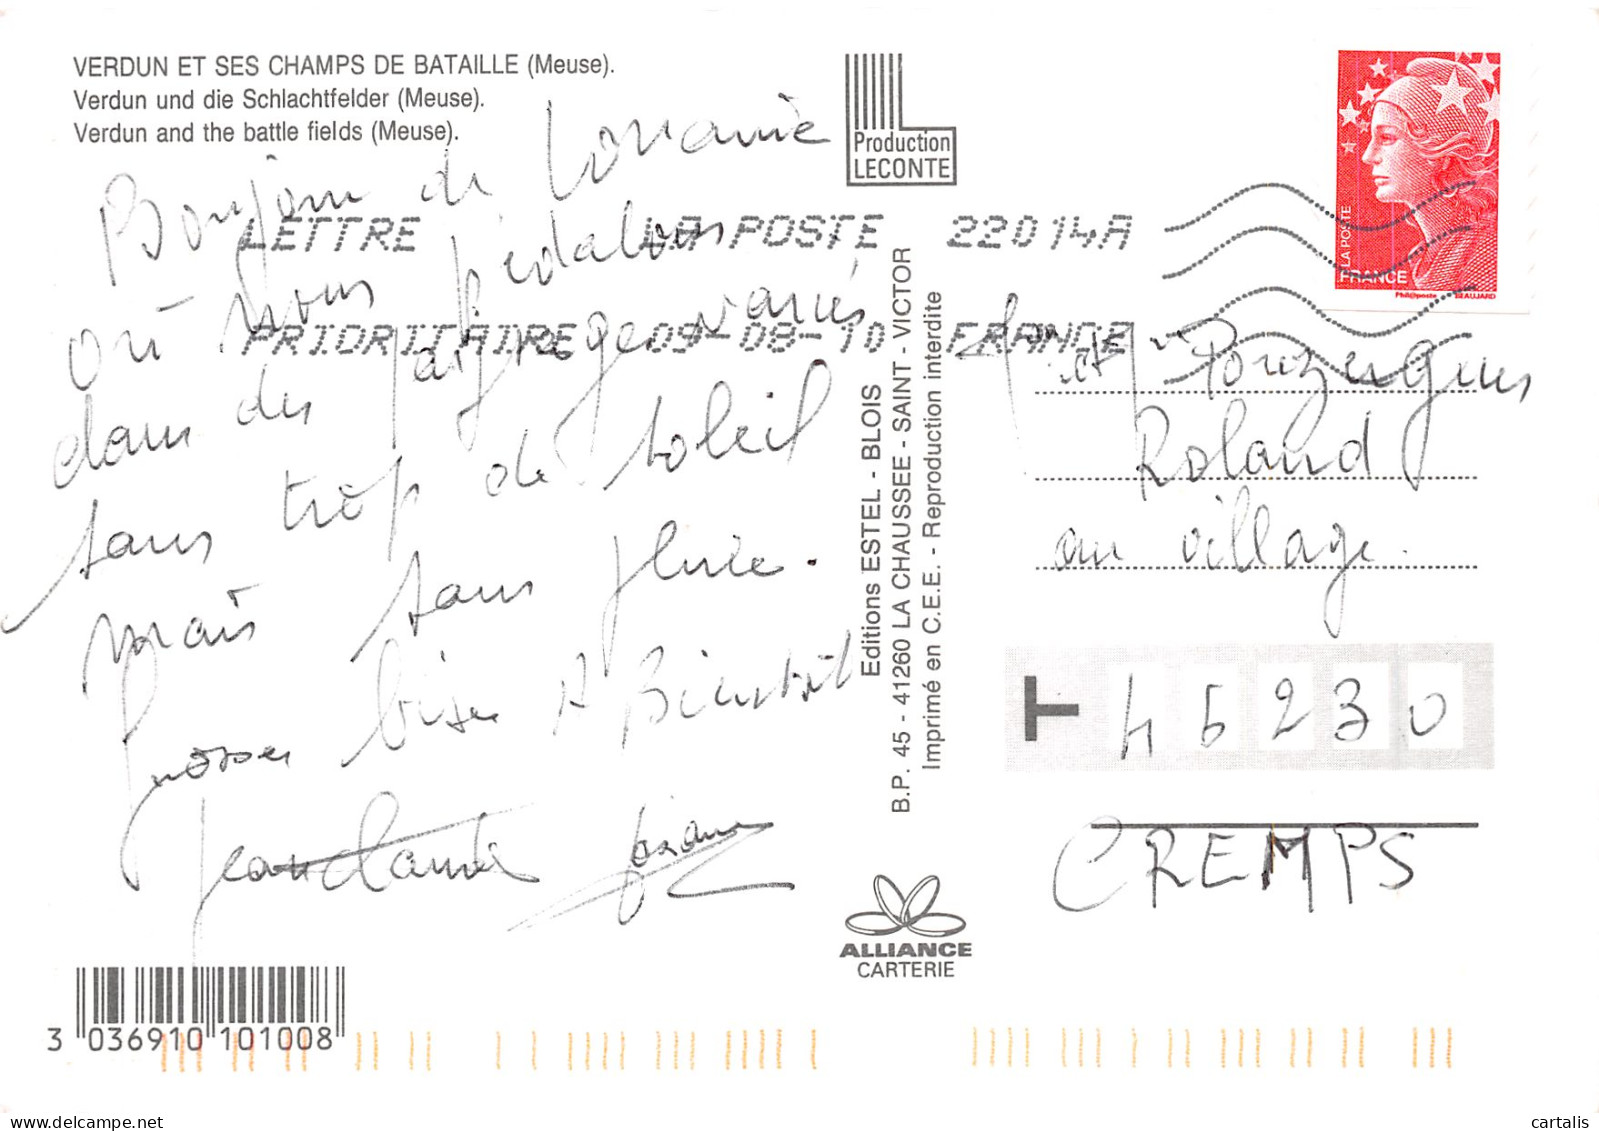 VERDUN ET SES CHAMPS DE BATAILLE (Meuse).
Verdun und die Schlachtfelder (Meuse).
Verdun and the battle fields (Meuse).
Bonjour de Lorraine
où nous pédalons
dans des paysages variés
sans trop de soleil
mais sans pluie.
Grosses bises A Bientôt
Jean Claude Josiane
Production
LECONTE
LETTRE LA POSTE 22014A
PRIORITAIRE 09-08-10 FRANCE
LA POSTE
FRANCE
Phil@poste BEAUJARD
Editions ESTEL - BLOIS
B.P. 45 - 41260 LA CHAUSSEE - SAINT - VICTOR
Imprimé en C.E.E. - Reproduction interdite
et Pouzergues
Roland
au village.
T 46230
CREMPS
ALLIANCE
CARTERIE
3 036910 101008
cartalis